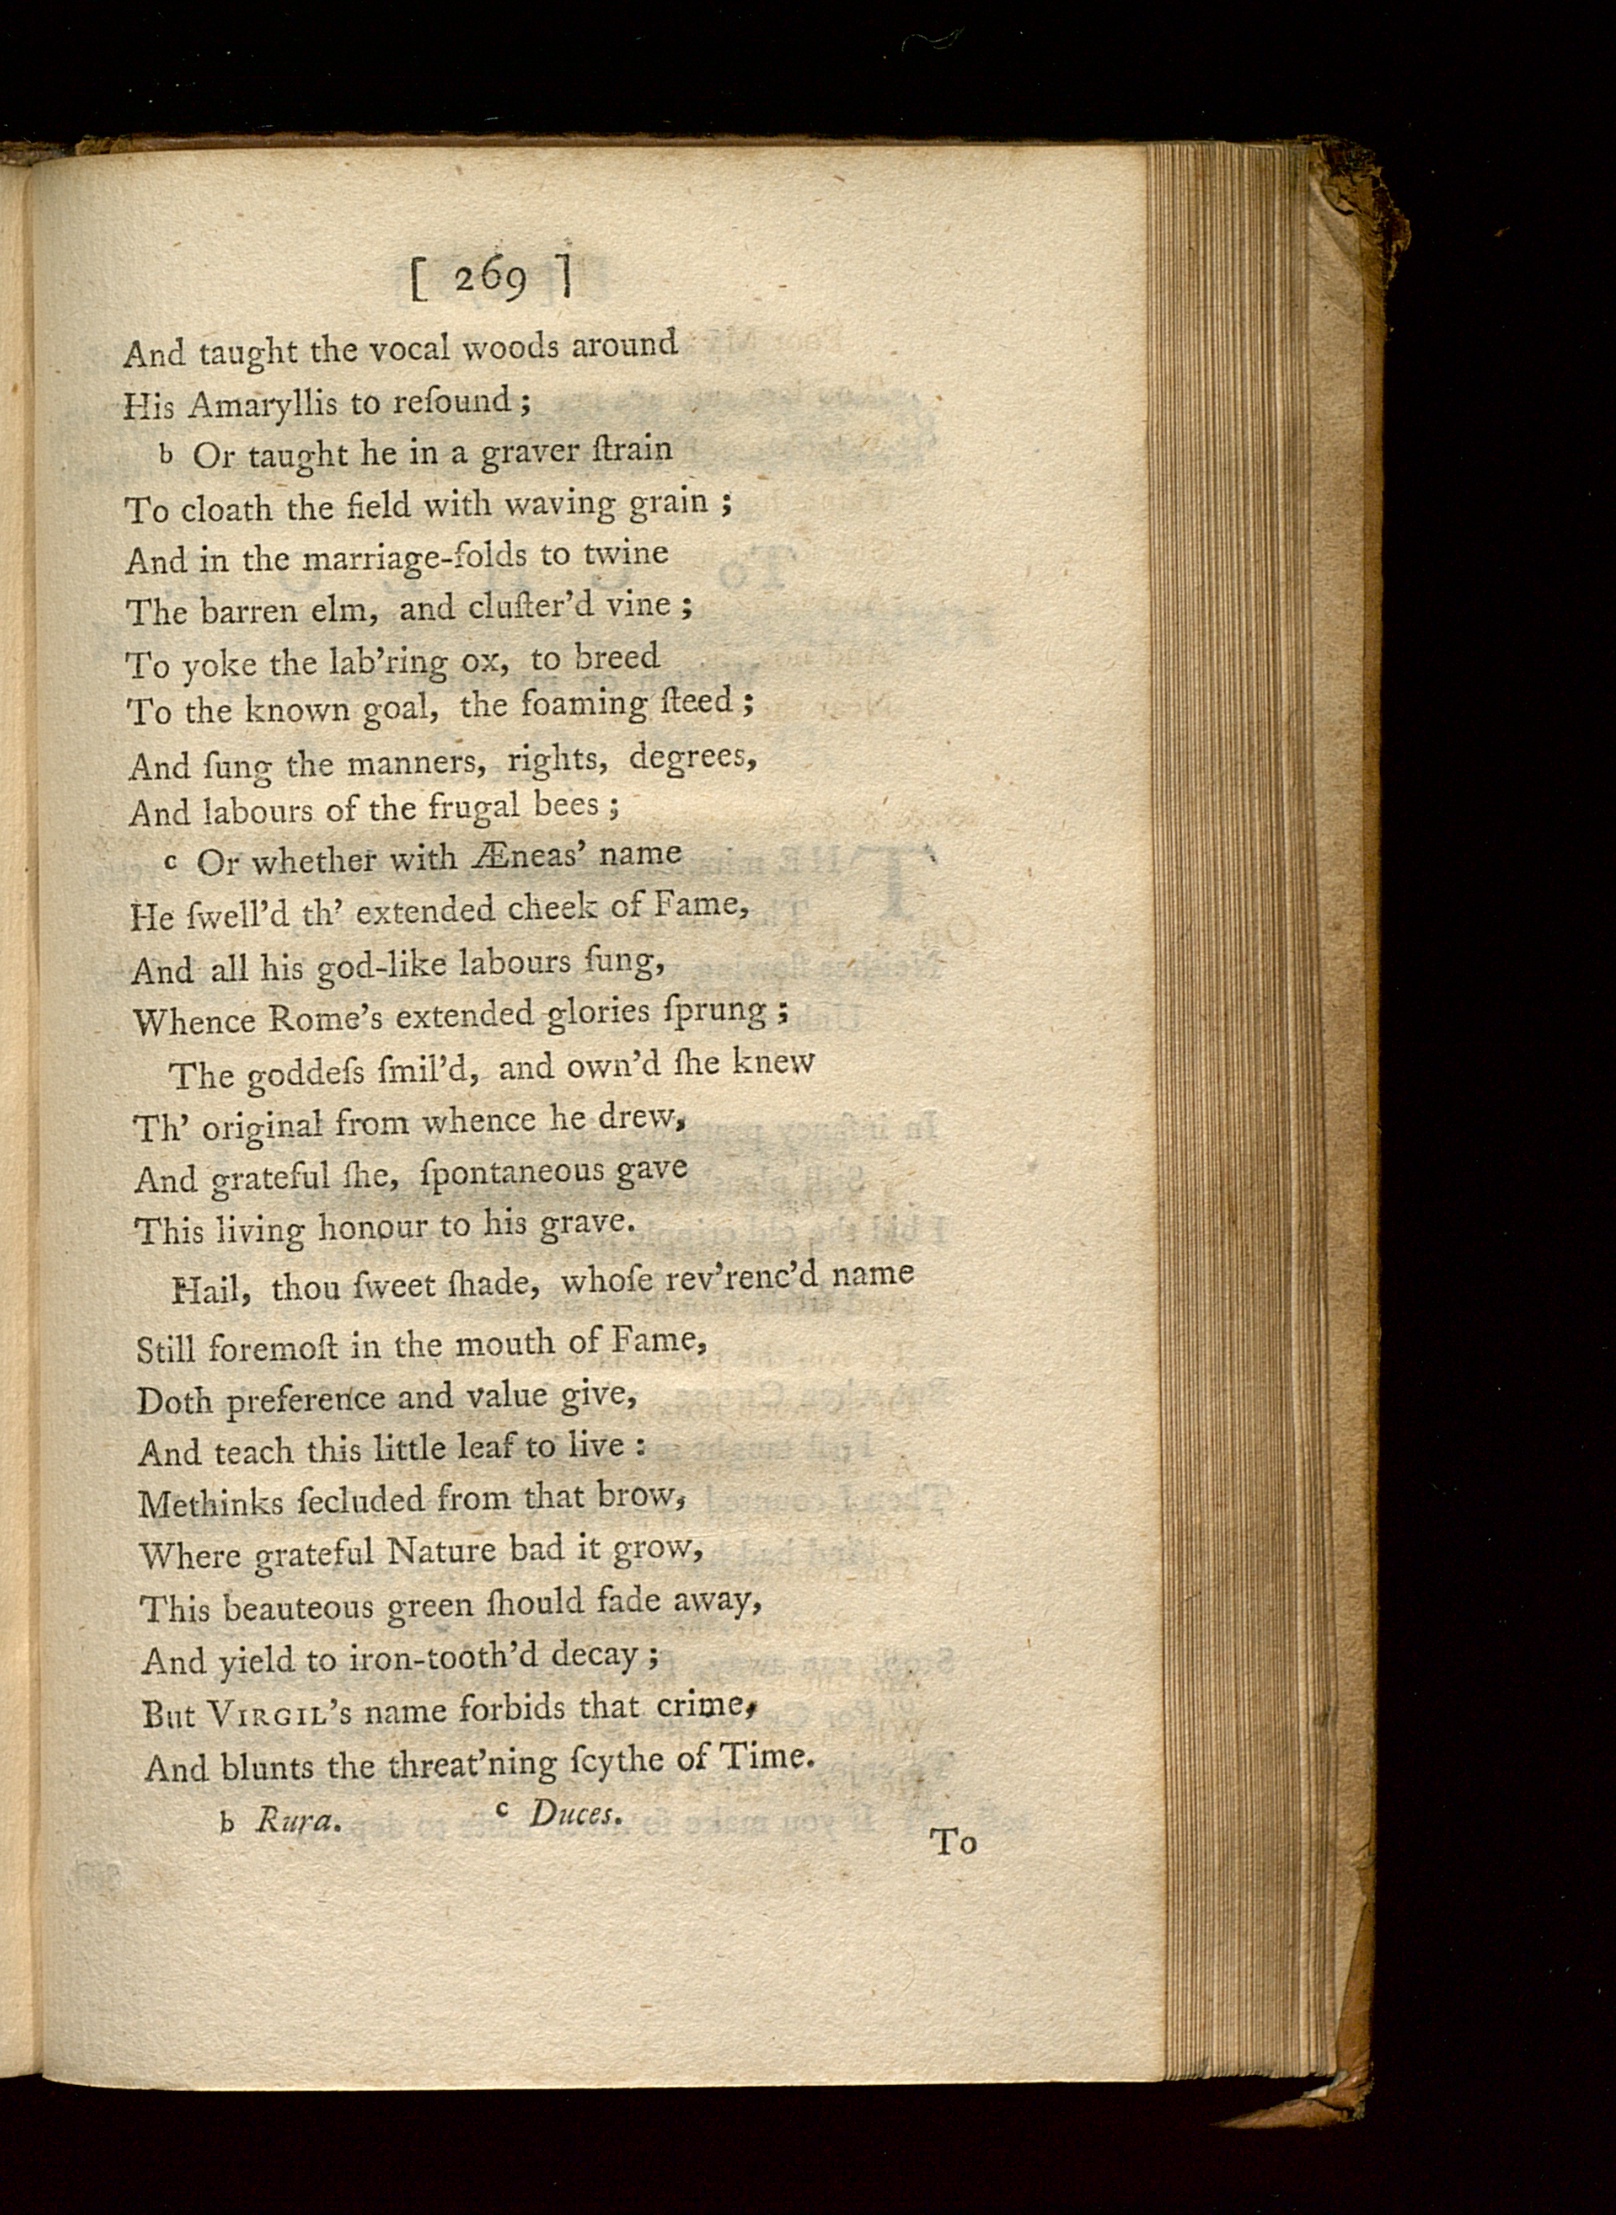 [ 269 ]
And taught the vocal woods around
His Amaryllis to reſound ;
b Or taught he in a graver ſtrain
To cloath the field with waving grain ;
And in the marriage-folds to twine
The barren elm, and cluſter'd vine ;
To yoke the lab'ring ox, to breed
To the known goal, the foaming ſteed ;
And ſung the manners, rights, degrees,
And labours of the frugal bees ;
c Or whether with Æneas' name
He ſwell'd th' extended cheek of Fame,
And all his god-like labours ſung,
Whence Rome's extended glories ſprung ;
The goddeſs ſmil'd, and own'd ſhe knew
Th' original from whence he drew,
And grateful ſhe, ſpontaneous gave
This living honour to his grave.
Hail, thou ſweet ſhade, whoſe rev'renc'd name
Still foremoſt in the mouth of Fame,
Doth preference and value give,
And teach this little leaf to live :
Methinks ſecluded from that brow,
Where grateful Nature bad it grow,
This beauteous green ſhould fade away,
And yield to iron-tooth'd decay ;
But VIRGIL's name forbids that crime,
And blunts the threat'ning ſcythe of Time.
b Rura. c Duces.
To